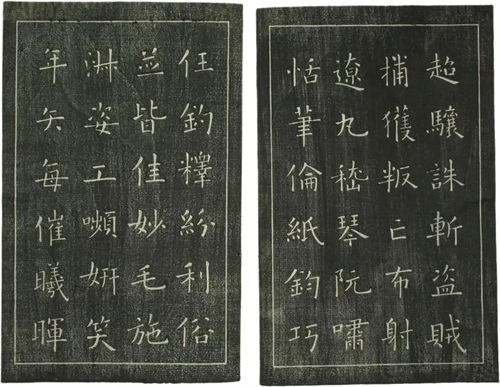 超驤誅斬盗賊
捕獲叛亡布射
遼丸嵇琴阮嘯
恬筆倫紙鈞巧
任釣釋紛利俗
並皆佳妙毛施
淑姿工嚬妍笑
年矢每催曦暉